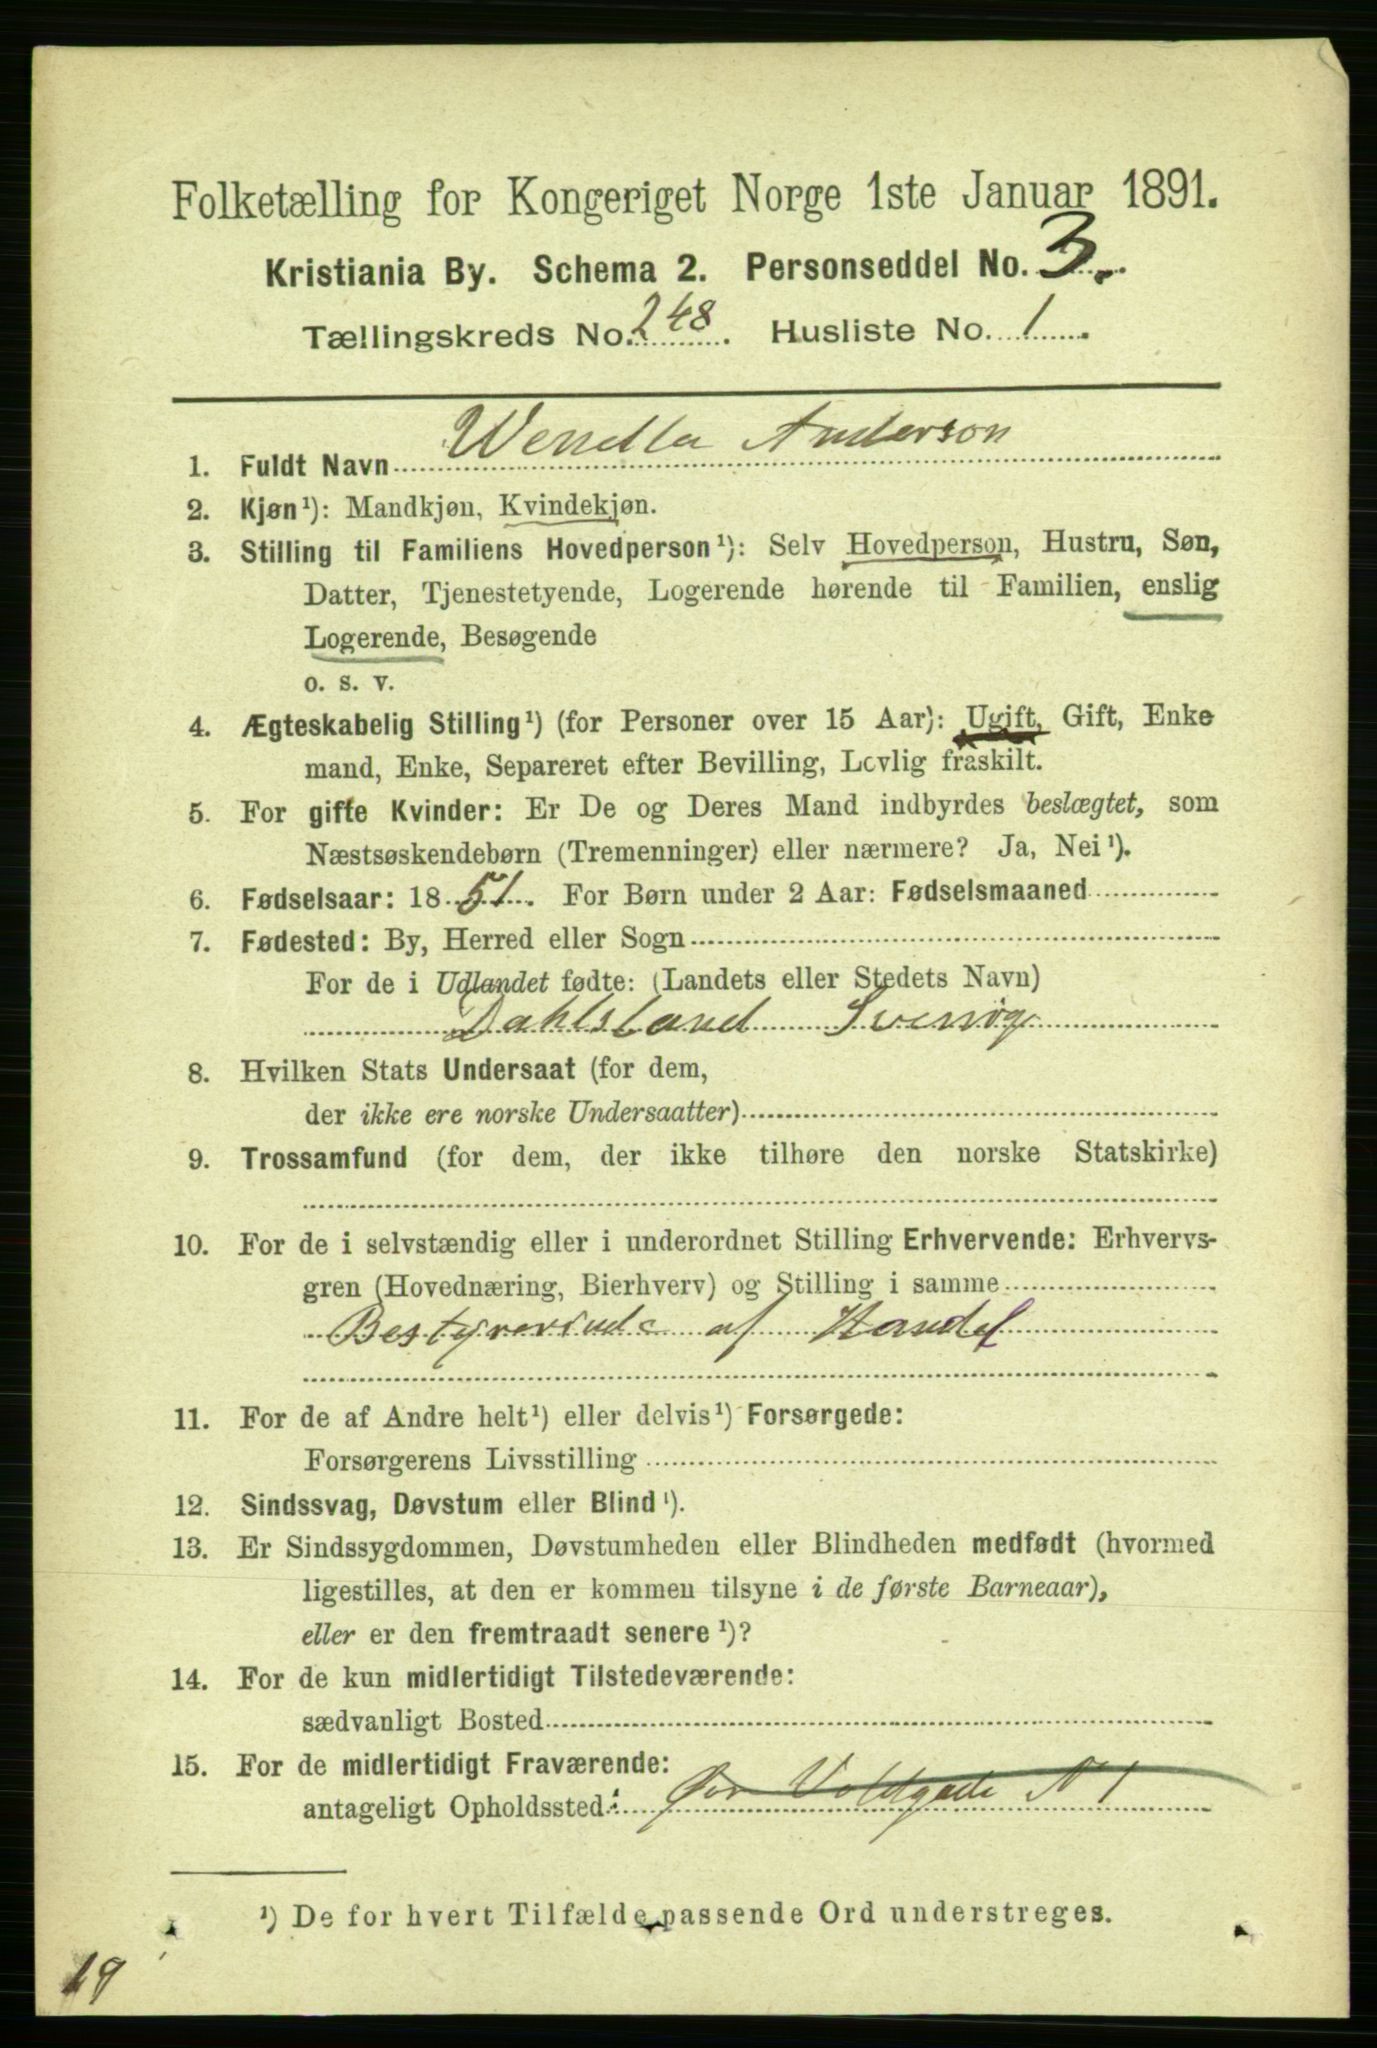 Folketælling for Kongeriget Norge 1ste Januar 1891.
Kristiania By. Schema 2. Personseddel No. 3.
Tællingskreds No. 248. Husliste No. 1.
1. Fuldt Navn Wenella Anderson
2. Kjøn¹): Mandkjøn, Kvindekjøn.
3. Stilling til Familiens Hovedperson¹): Selv Hovedperson, Hustru, Søn,
Datter, Tjenestetyende, Logerende hørende til Familien, enslig
Logerende, Besøgende
o. s. v.
4. Ægteskabelig Stilling¹) (for Personer over 15 Aar): Ugift, Gift, Enke
mand, Enke, Separeret efter Bevilling, Lovlig fraskilt.
5. For gifte Kvinder: Er De og Deres Mand indbyrdes beslægtet, som
Næstsøskendebørn (Tremenninger) eller nærmere? Ja, Nei¹).
6. Fødselsaar: 1851. For Børn under 2 Aar: Fødselsmaaned
7. Fødested: By, Herred eller Sogn
For de i Udlandet fødte: (Landets eller Stedets Navn)
Dahlsland Sverrige
8. Hvilken Stats Undersaat (for dem,
der ikke ere norske Undersaatter)
9. Trossamfund (for dem, der ikke tilhøre den norske Statskirke)
10. For de i selvstændig eller i underordnet Stilling Erhvervende: Erhvervs-
gren (Hovednæring, Bierhverv) og Stilling i samme
Bestyrerinde af Handel
11. For de af Andre helt¹) eller delvis¹) Forsørgede:
Forsørgerens Livsstilling
12. Sindssvag, Døvstum eller Blind¹).
13. Er Sindssygdommen, Døvstumheden eller Blindheden medfødt (hvormed
ligestilles, at den er kommen tilsyne i de første Barneaar),
eller er den fremtraadt senere¹)?
14. For de kun midlertidigt Tilstedeværende:
sædvanligt Bosted
15. For de midlertidigt Fraværende:
antageligt Opholdssted: Øvr Voldgade N 1
¹) De for hvert Tilfælde passende Ord understreges.
19